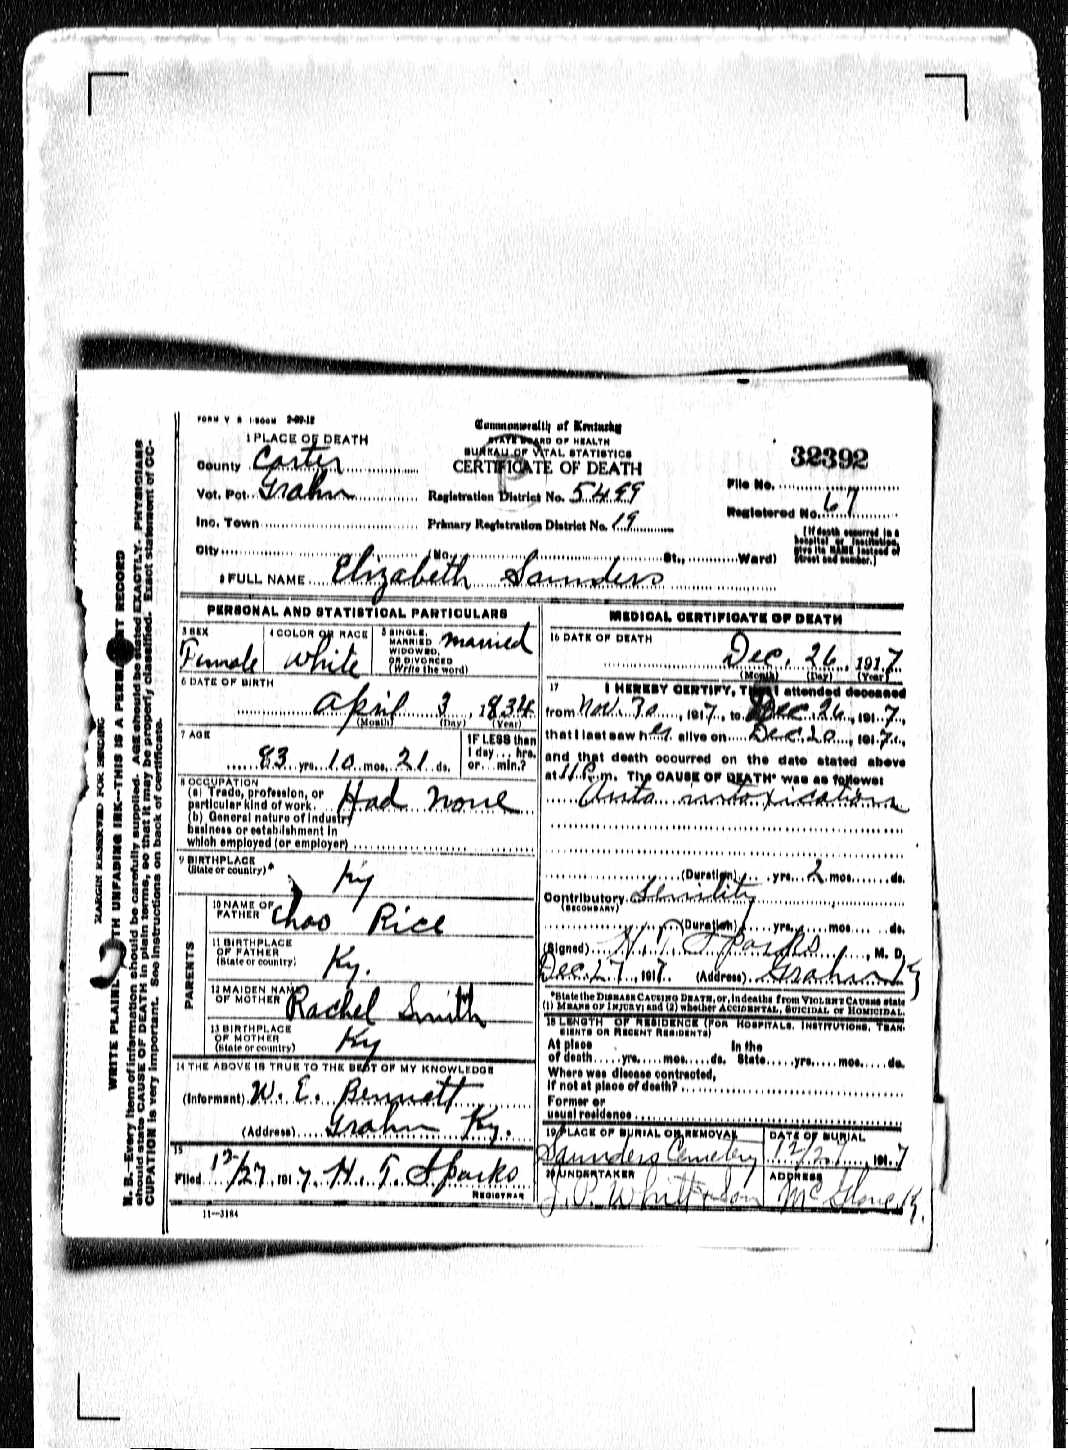 FORM V S 1-500M 2-09-12
Commonwealth of Kentucky
STATE BOARD OF HEALTH
BUREAU OF VITAL STATISTICS
CERTIFICATE OF DEATH
32392
1 PLACE OF DEATH
County Carter
Vot. Pct. Grahn
Registration District No. 5499
File No.
Registered No. 67
Inc. Town
Primary Registration District No. 19
[If death occurred in a hospital or institution, give its NAME instead of street and number.]
City (No. St., Ward)
2 FULL NAME Elizabeth Saunders
PERSONAL AND STATISTICAL PARTICULARS
3 SEX Female
4 COLOR OR RACE White
5 SINGLE, MARRIED WIDOWED, OR DIVORCED (Write the word) married
6 DATE OF BIRTH
April 3, 1834
(Month) (Day) (Year)
7 AGE
83 yrs. 10 mos. 21 ds.
IF LESS than 1 day... hrs. or... min.?
8 OCCUPATION
(a) Trade, profession, or particular kind of work. Had none
(b) General nature of industry
business or establishment in
which employed (or employer)
9 BIRTHPLACE
(State or country) Ky
PARENTS
10 NAME OF FATHER Rice
11 BIRTHPLACE OF FATHER (State or country) Ky.
12 MAIDEN NAME OF MOTHER Rachel Smith
13 BIRTHPLACE OF MOTHER (State or country) Ky
14 THE ABOVE IS TRUE TO THE BEST OF MY KNOWLEDGE
(Informant) W. E. Bennett
(Address) Grahn Ky.
15
Filed 12/27, 1917. H. T. Sparks
REGISTRAR
11-3184
MEDICAL CERTIFICATE OF DEATH
16 DATE OF DEATH
Dec. 26, 1917
(Month) (Day) (Year)
17 I HEREBY CERTIFY, That I attended deceased
from Nov. 30, 1917, to Dec 26, 1917,
that I last saw her alive on Dec. 20, 1917,
and that death occurred on the date stated above
at 11 P. m. The CAUSE OF DEATH* was as follows:
Auto intoxication
(Duration) yrs. 2 mos. ds.
Contributory Senility
(SECONDARY)
(Duration) yrs. mos. ds.
(Signed) H. T. Sparks, M. D.
Dec. 27, 1917. (Address) Grahn Ky
*State the DISEASE CAUSING DEATH, or, in deaths from VIOLENT CAUSES state
(1) MEANS OF INJURY; and (2) whether ACCIDENTAL, SUICIDAL or HOMICIDAL.
18 LENGTH OF RESIDENCE (FOR HOSPITALS, INSTITUTIONS, TRANSIENTS OR RECENT RESIDENTS)
At place of death yrs. mos. ds. In the State yrs. mos. ds.
Where was disease contracted,
If not at place of death?
Former or
usual residence
19 PLACE OF BURIAL OR REMOVAL
Saunders Cemetery
DATE OF BURIAL
12/27, 1917
20 UNDERTAKER
ADDRESS
McGlone Ky.
MARGIN RESERVED FOR BINDING
WRITE PLAINLY WITH UNFADING INK--THIS IS A PERMANENT RECORD
N. B.--Every item of information should be carefully supplied. AGE should be stated EXACTLY. PHYSICIANS
should state CAUSE OF DEATH in plain terms, so that it may be properly classified. Exact statement of OC-
CUPATION is very important. See instructions on back of certificate.